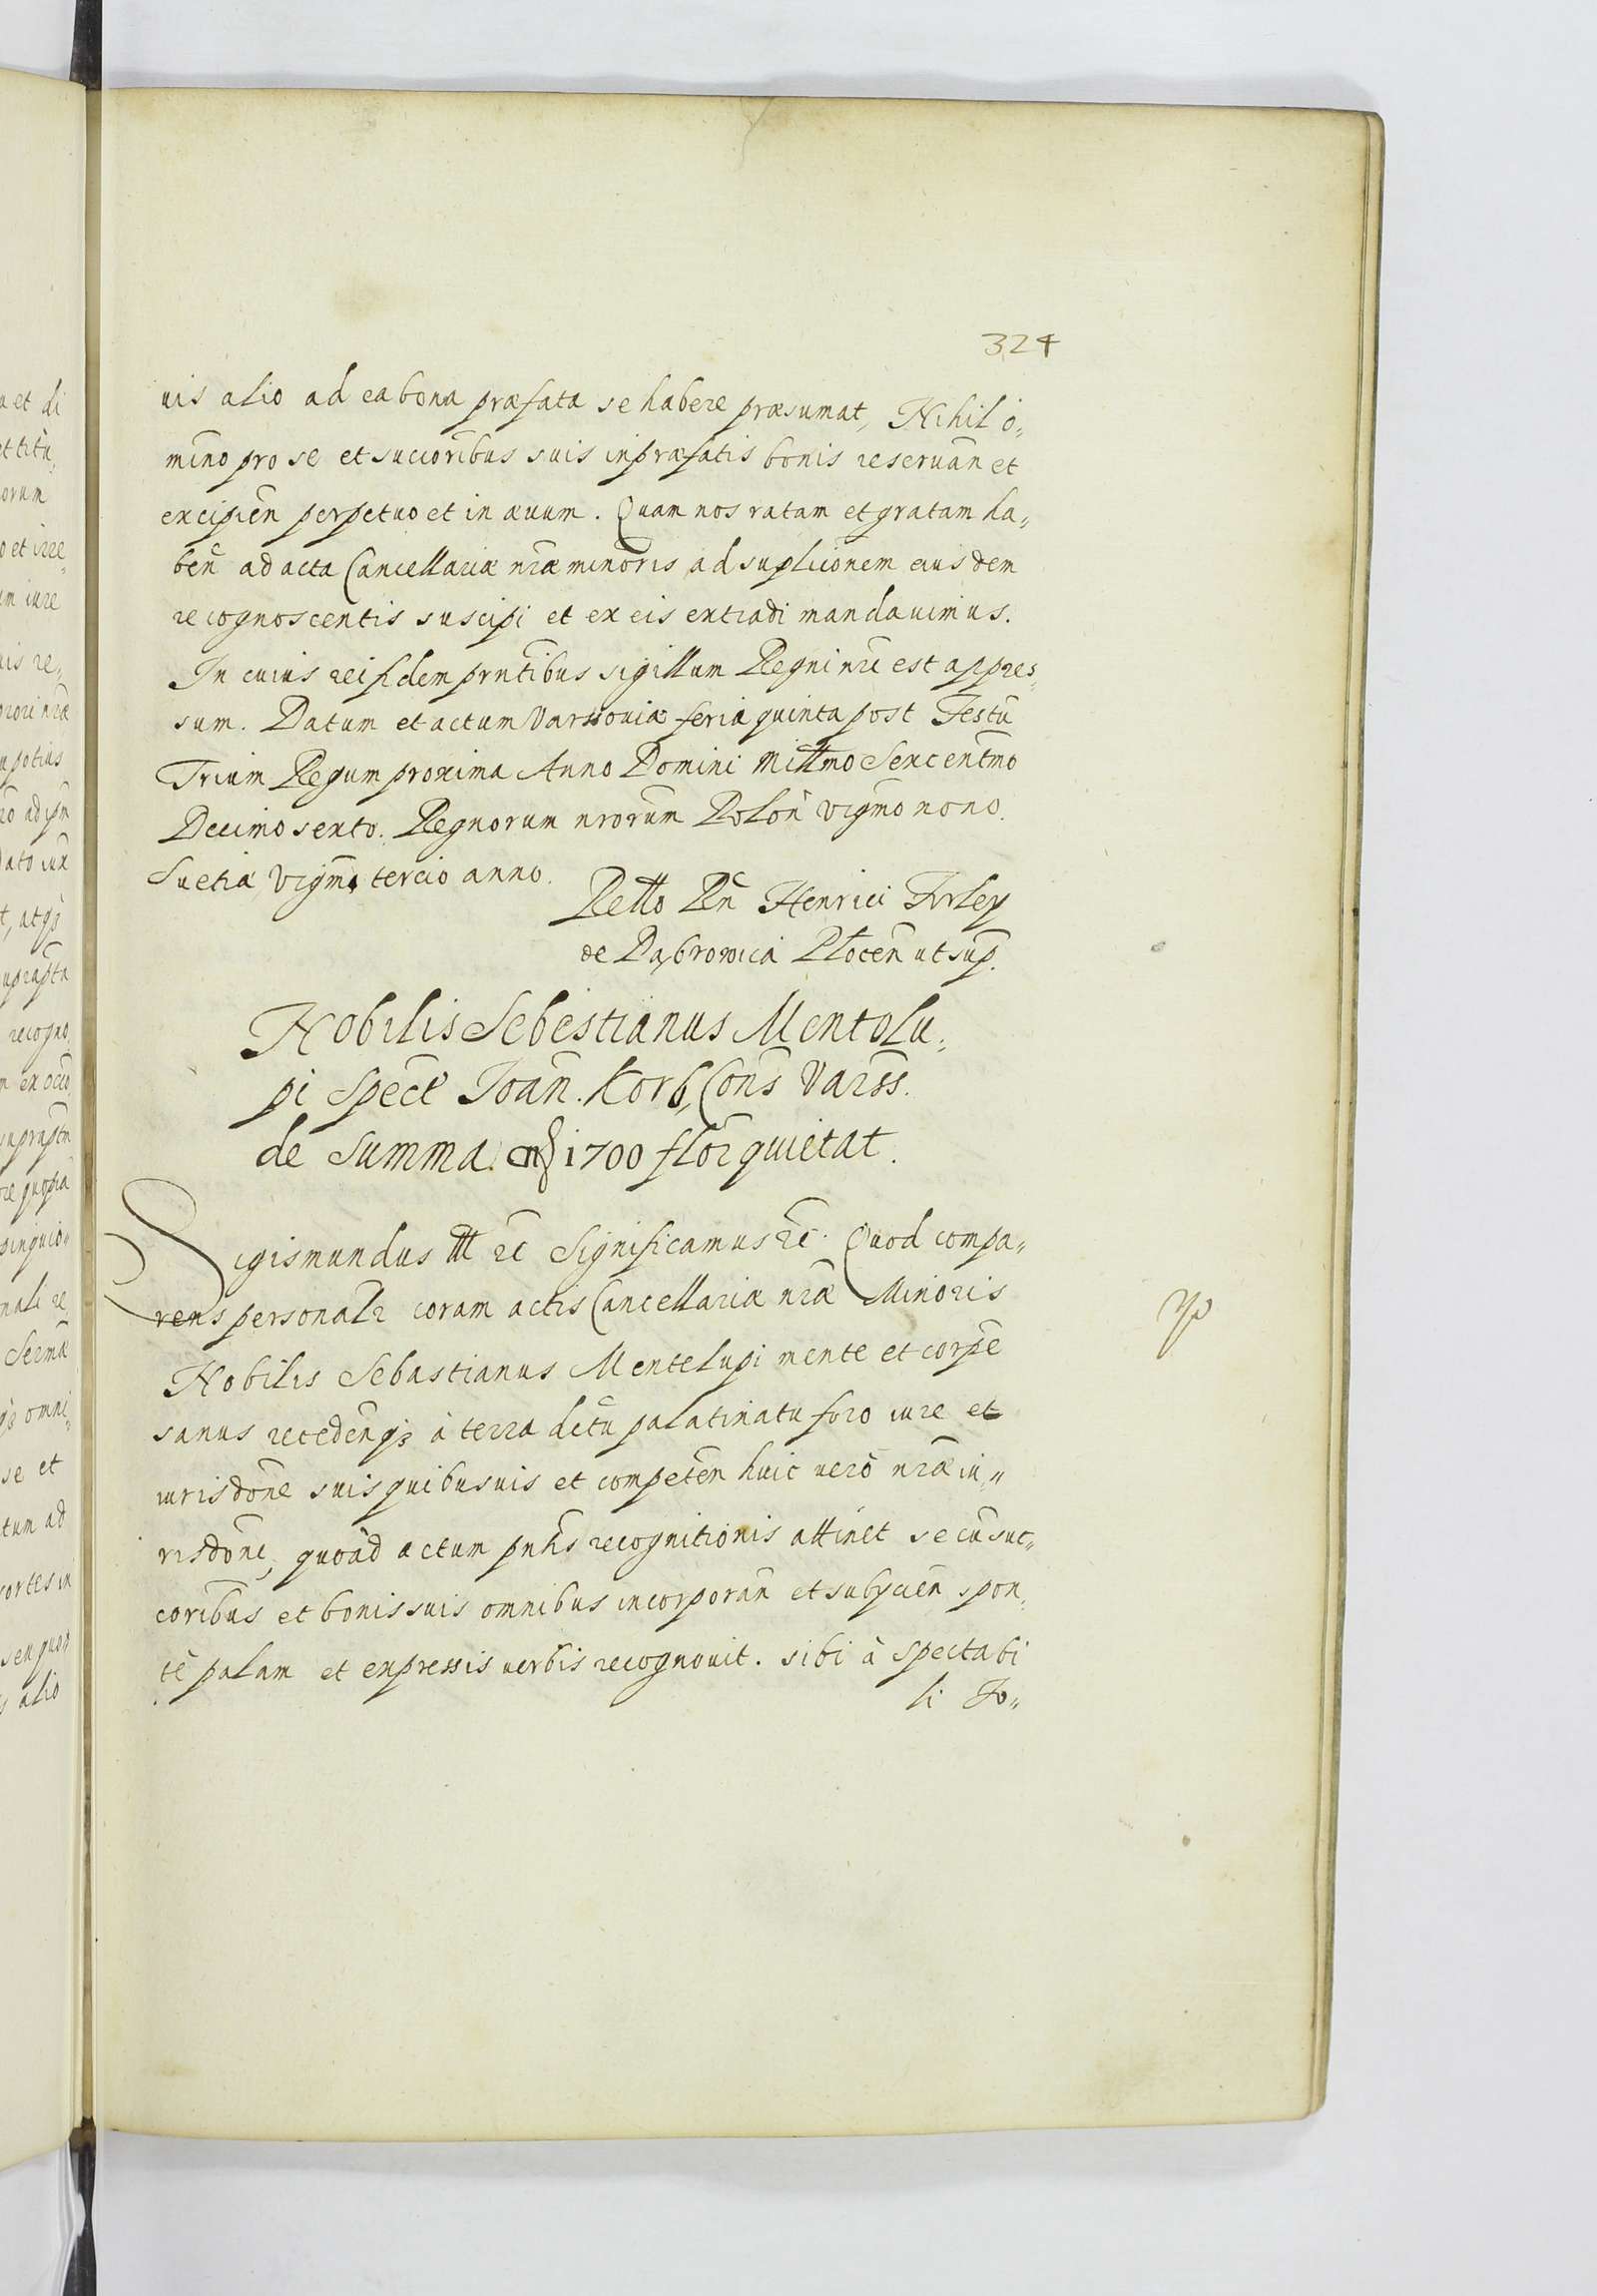 324
uis alio ad ea bona præfata se habere præsumat, Nihil o„
mĩno pro se et succorĩbus suis in præfatis bonis reseruañ et
excipieñ perpetuo et in æuum. Quam nos ratam et gratam ha„
beñ ad acta Cancellariæ nr̃æ minoris ad suplicõnem eiusdem
recognoscentis suscipi et ex eis extradi mandauimus.
In cuius rei fidem prñtibus sigillum Regni nrĩ est appres„
sum. Datum et actum Varssouiæ feria quinta post Festũ
Trium Regum proxima Anno Domini Millmo Sexcentm̃o
Decimo sexto. Regnorum nrorũm Poloñ vigm̃o nono.
Suetiæ vigm̃o tercio anno.
Retto Rñ Henrici Firley
de Dąbrowica Plocen̄ ut sup̃.
Nobilis Sebestianus Mentolu„
pi Spect̃ Joañ. Korb, Coñs Varss̃.
de summa 1700 flor̃ quietat.
Sigismundus III rc̃ Significamus rc̃. Quod compa„
rens personalr coram actis Cancellariæ nr̃æ Minoris
Nobilis Sebastianus Mentelupi mente et corpẽ
sanus recedenq̃ʒ à terra dictũ palatinatu foro iure et
iurisdõne suis quibusuis et competeñ huic uerò nr̃æ iu„
risdõni, quoàd actum pñtis recognitionis attinet se cũ suc„
corĩbus et bonis suis omnibus incorporañ et subycieñ spon„
tè palam et expressis uerbis recognouit. sibi à Spectabi
li Jo„